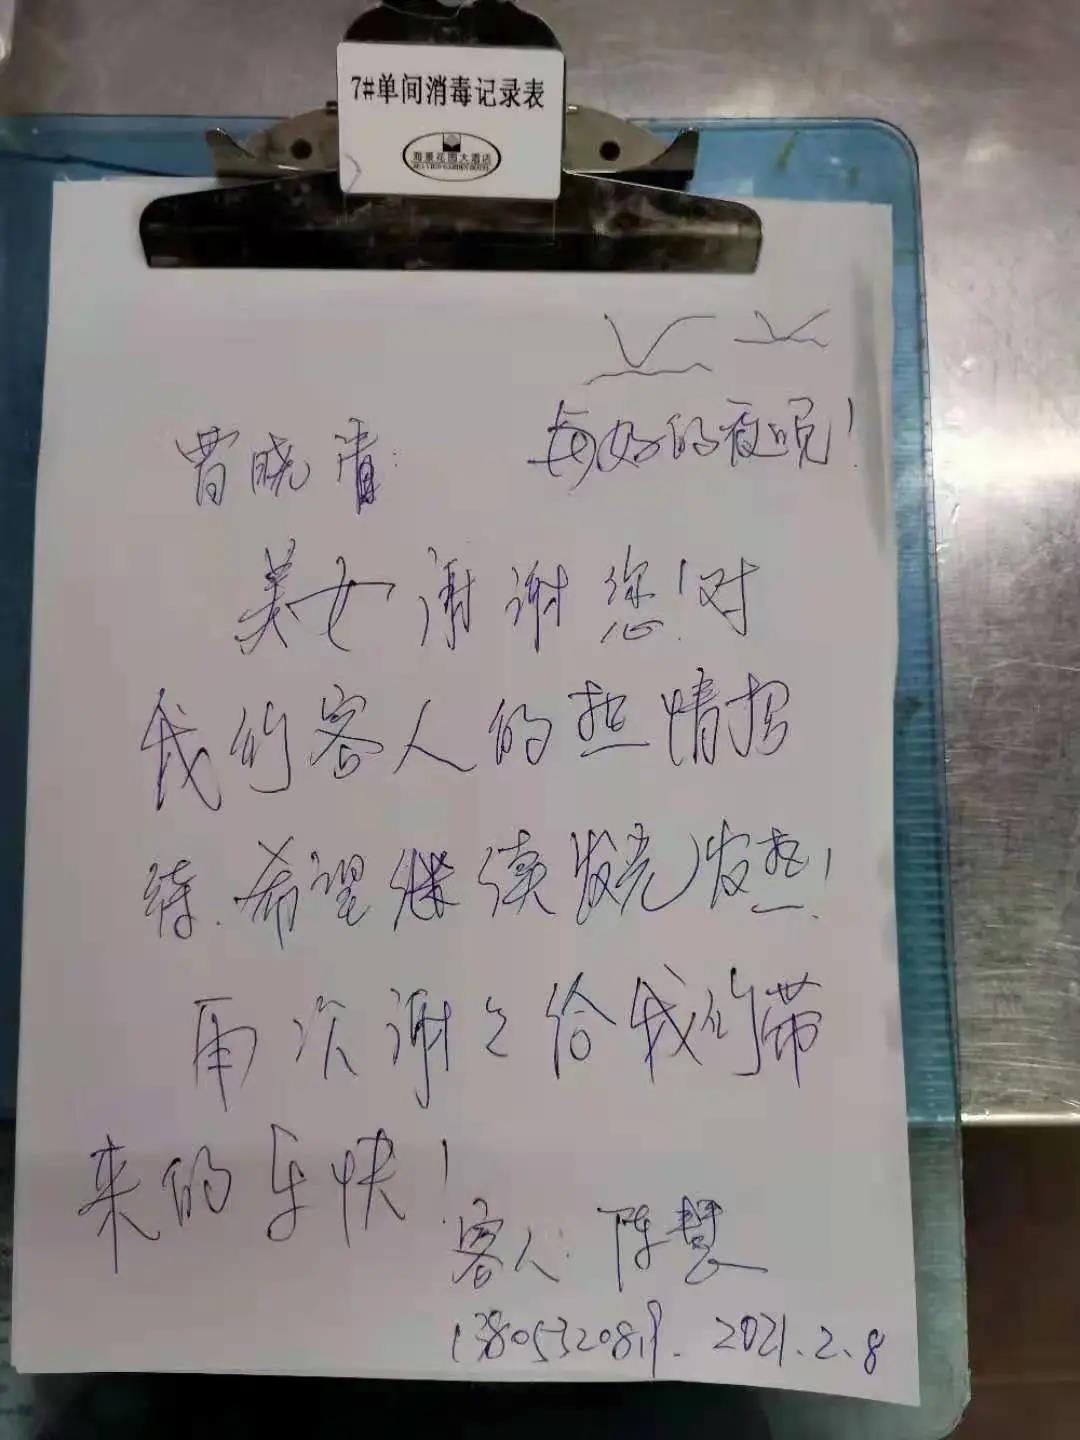 7#单间消毒记录表
海景花园大酒店
SEA VIEW GARDEN HOTEL
曹晓青: 每好的夜晚!
美女谢谢您!对
我们客人的热情招
待.希望继续发光发热!
再次谢々给我们带
来的乐快!
客人:陈慧
2021.2.8